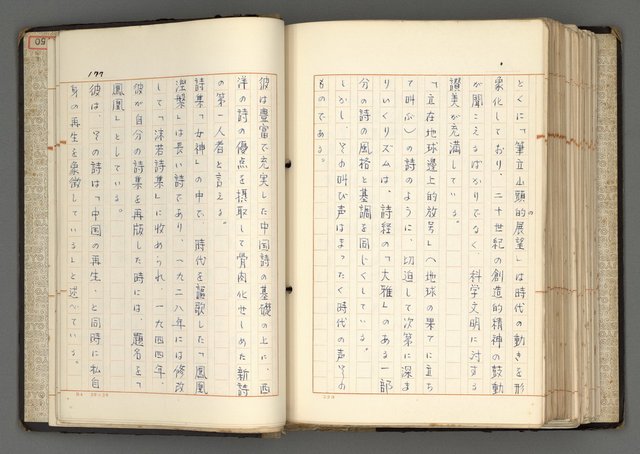 とくに「筆立山頭的展望」は時代の動きを形
の
象化しており、二十世紀の創造的精神の鼓動
が聞こえるばかりでなく、科学文明に対する
讃美が充満している。
「立在地球邊上的放号」へ地球の果てに立ち
て叫ぶ)の詩のように、切迫して次第に深ま
りいくリズムは、詩経の「大雅」のある一部
分の詩の風格と基調を同じくしている。
しかし、その叫び声はまったく時代の声その
ものである。
220
05
177
彼は豊富で充実した中国詩の基礎の上に、西
洋の詩の優点を摂取して骨肉化せしめた新詩
の第一人者と言える。
詩集「女神」の中で、時代を謳歌した「鳳凰
涅槃」は長い詩であり、一九二八年には修改
して「沫若詩集」に收められ、一九四四年、
彼が自分の詩集を再版した時には、題名を「
鳳凰」としている。
彼は、その詩は「中国の再生、と同時に私自
身の再生を象徴している」と述べている。
20×20